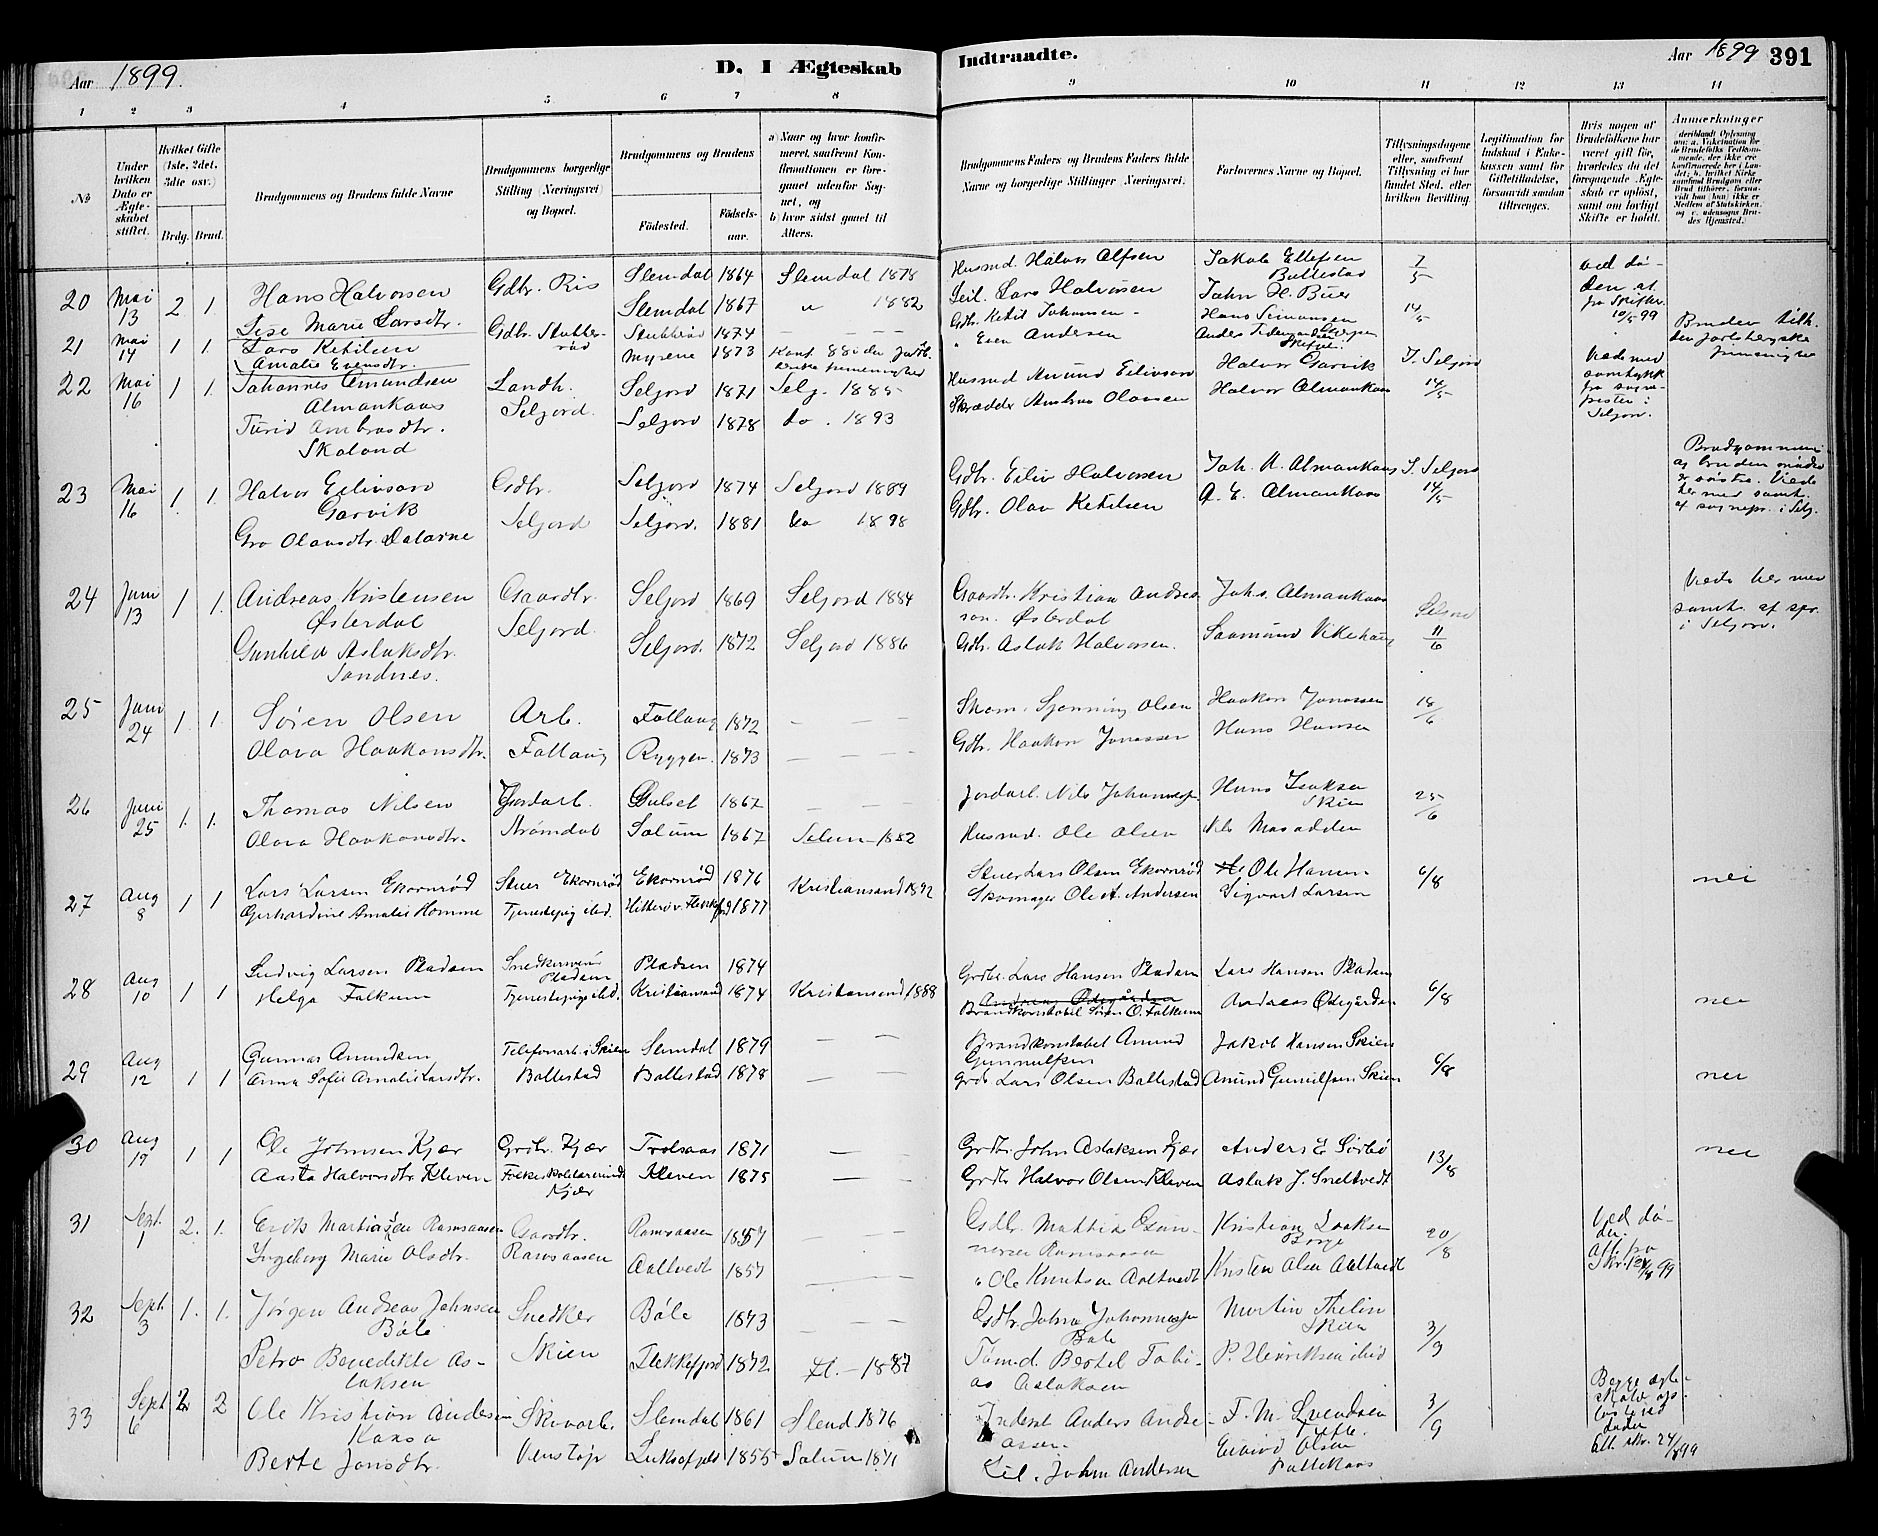 Aar 1899. D. I Ægteskab Indtraadte. Aar 1899 391
1 2 3 4 5 6 7 8 9 10 11 12 13 14
No
Under hvilken Dato er Ægteskabet stiftet.
Hvilket Gifte (1ste, 2det, 3die osv.)
Brdg. Brud.
Brudgommens og Brudens fulde Navne
Brudgommens borgerlige Stilling (Næringsvei) og Bopæl.
Brudgommens og Brudens
Fødested. Fødselsaar.
a) Naar og hvor konfirmeret, saafremt Konfirmationen er foregaaet udenfor Sognet, og
b) hvor sidst gaaet til Alters.
Brudgommens Faders og Brudens Faders fulde Navne og borgerlige Stillinger (Næringsvei).
Forlovernes Navne og Bopæl.
Tillysningsdagene eller, saafremt Tillysning ei har fundet Sted, efter hvilken Bevilling.
Legitimation for Indskud i Enkekassen samt for Giftetilladelse, forsaavidt saadan tiltrænges.
Hvis nogen af Brudefolkene har været gift før, hvorledes da det foregaaende Ægteskab er opløst, samt om lovligt Skifte er holdt.
Anmerkninger
20 Mai 13 2. 1. Hans Halvorsen Gdbr. Ris Slemdal 1864 Slemdal 1878 Husmd. Halvor Alfsen Jakob Ellefsen Ballestad 7/5 ved døden at. fra Skifter. 10/5 99
Lise Marie Larsdtr. Slemdal 1867 " 1882 Seil. Lars Halvorsen John H. Buer
21 Mai 14 1 1. Lars Ketilsen Gdbr. Stubberød Stubberød 1874 — — Gdbr. Ketil Johansen Hans Simonsen 14/5
Amalie Evensdtr. Myrene 1873 " Even Andersen
22 Mai 16 1 1. Johannes Amundsen Almankaas Landh. Seljord. Seljord 1871 Selj. 1885 Husmd Amund Eilivson Halvor Garvik I. Seljord 14/5
Turid Ambrosdtr. Skoland Seljord 1878 do. 1893 Skrædder Ambros Olavsen Halvor Almankaas
23 Mai 16 1. 1. Halvor Eilivson Garvik Gdbr. Seljord Seljord 1874 Seljord 1889 Gdbr. Eiliv Halvorsen Joh. A. Almankaas I. Seljord 14/5
Gro Olavsdtr. Dalarne Seljord. 1881 do 1898 Gdbr. Olav Ketilsen A. E. Almankaas
24 Juni 13 1 1. Andreas Kristensen Østerdal Gaardbr. Seljord. Seljord 1869 Seljord 1884 Gaardbr. Kristian Andreason. Østerdal Johs. Almankaas Seljord 11/6 Viede her med samt. af spr. i Seljord.
Gunhild Aslaksdtr. Sandnes. Seljord. 1872 Seljord 1886 Gdbr. Aslak Halvorsen. Saamund Vikehaug
25 Juni 24 1. 1. Søren Olsen Arb. Follaug Follaug 1872 — — Skom. Sjønning Olsen Haakon Jonassen 18/6
Olava Haakonsdtr. Ryggen. 1873 — — Gdbr. Haakon Jonassen Hans Hansen
26 Juni 25 1. 1. Thomas Nilsen Jordarb. Strømdal Gulset 1867 — — Jordarb. Nils Johannesen Hans Isaksen Skien 25/6
Olava Haakonsdtr. Solum 1867 Solum 1882 Husmd. Ole Olsen Nils Masadden
27 Aug 8 1 1 Lars Larsen Ekornrød Stuer Ekornrød Ekornrød 1876 Kristiansand 1892 Stuer Lars Olsen Ekornrød Ole Hansen 6/8 nei
Gerhardine Amalie Homme Tjenestepig ibd. 1877 Skomager Ole A. Andersen Sigvart Larsen
28 Aug 10 1 1 Ludvig Larsen Pladsen Pladsen Pladsen 1874 Grdbr. Lars Hansen Pladsen Lars Hansen Pladsen 6/8 nei
Helga Falkum Tjenestepige ibd. Kristiansand 1874 Kristiansand 1888 Andreas Ødegården Brandkonstabel Søren O. Falkum Andreas Ødegården
29 Aug 12 1 1 Gunnar Amundsen Telefonarb. i Skien Slemdal 1879 — — Brandkonstabel Amund Gunnulfsen Jakob Hansen Skien 6/8 nei
Anna Sofie Amalie Larsdtr. Ballestad Ballestad 1878 — — Grdbr Lars Olsen Ballestad Amund Gunulfsen Skien
30 Aug 19 1 1 Ole Johnsen Kjær Grdbr. Kjær Trolsaas 1871 — — Grdbr. John Aslaksen Kjær Anders E Sørbø 13/8 nei
Aasta Halvorsdtr. Kleven Kjær Kleven 1875 — — Grdbr Halvor Olsen Kleven Aslak J. Sneltvedt
31 Sept. 1 2. 1. Erik Martinsen Ramsaasen Gaardbr. Ramsaasen Ramsaasen 1857 — — Gdbr. Ramsaasen Kristian Isaksen Borge 20/8 Ved døden.
Ingeborg Marie Olsdtr. Aaltvedt 1857 — — " Ole Knutsen Aaltvedt Kristen Olsen Aaltvedt
32 Sept. 3 1. 1. Jørgen Andreas Johnsen Bøle Snedker Skien Bøle 1873 — — Gdbr. John Johannessen Bøle Martin Thelin Skien 3/9
Petra Benedikte Aslaksen Flekkefjord 1872 Fl. — 1887 Tømmd. Bertel Tobias Aslaksen P. Henriksen ibid
33 Sept 6 2 2 Ole Kristian Andersen Skivarb. Venstøp Slemdal 1861 Slemd. 1876 Inderst Anders Andreassen. F. M. Svendsen 3/9 Begge ægteskaber opløste ved døden Att. skr. 24/1899
Berte Jonsdtr. 1855 Solum 1871 Seil. John Andersen Eivind Olsen Ballekaas